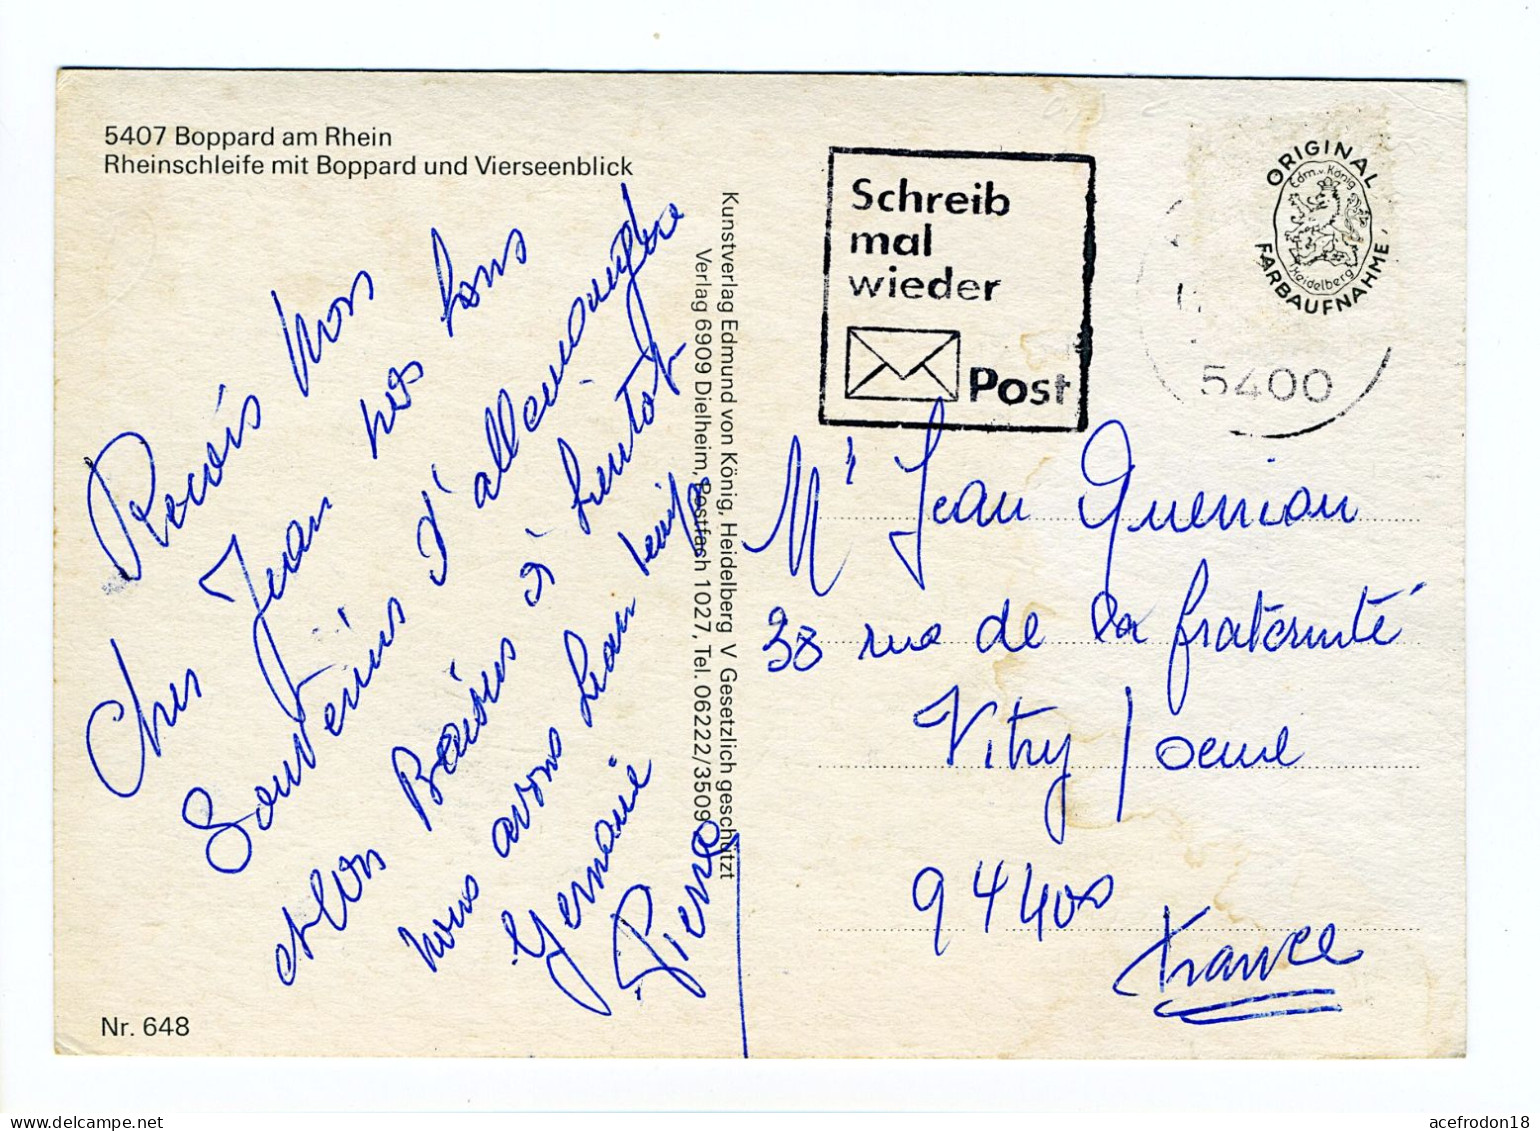 5407 Boppard am Rhein
Rheinschleife mit Boppard und Vierseenblick
Recois Mon
Cher Jean nos bons
Souvenirs d'allemangne
et bons Baisers à bientot
nous avons beau temps
Germaine
Pierre
Nr. 648
Kunstverlag Edmund von König, Heidelberg V Gesetzlich geschützt
Verlag 6909 Dielheim, Postfach 1027, Tel. 06222/3509
Schreib
mal
wieder
Post
ORIGINAL
Edm.v.König
Heidelberg
FARBAUFNAHME
5400
Mr Jean Querrion
38 rue de la fraternité
Vitry / seine
94400
France
acefrodon18